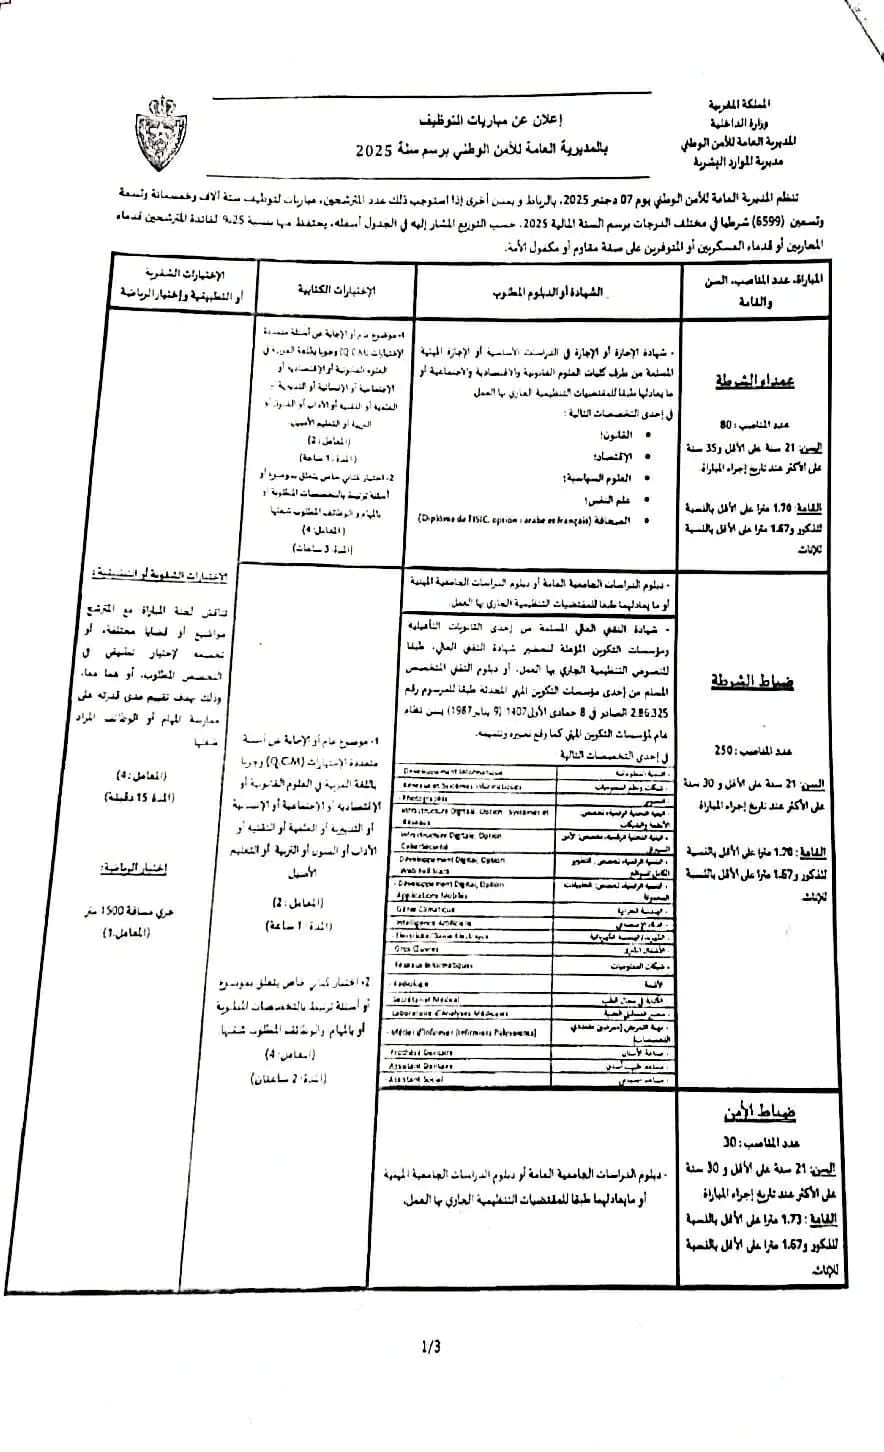 المملكة المغربية
وزارة الداخلية
المديرية العامة للأمن الوطني
مديرية الموارد البشرية
إعلان عن مباريات التوظيف
بالمديرية العامة للأمن الوطني برسم سنة 2025
تنظم المديرية العامة للأمن الوطني يوم 07 دجنبر 2025، بالرباط و بمدن أخرى إذا استوجب ذلك عدد المترشحين، مباريات لتوظيف ستة آلاف وخمسمائة وتسعة
وتسعين (6599) شرطيا في مختلف الدرجات برسم السنة المالية 2025. حسب التوزيع المشار إليه في الجدول أسفله، يحتفظ منها بنسبة 25% لفائدة المترشحين قدماء
المحاربين أو قدماء العسكريين أو المتوفرين على صفة مقاوم أو مكفول الأمة.
المباراة، عدد المناصب، السن
والقامة
الشهادة أو الدبلوم المطلوب
الإختبارات الكتابية
الإختبارات الشفوية
أو التطبيقية وإختبار الرياضة
عمداء الشرطة
عدد المناصب: 80
السن: 21 سنة على الأقل و35 سنة
على الأكثر عند تاريخ إجراء المباراة.
القامة: 1.70 مترا على الأقل بالنسبة
للذكور و1.67 مترا على الأقل بالنسبة
للإناث.
- شهادة الإجازة أو الإجازة في الدراسات الأساسية أو الإجازة المهنية
المسلمة من طرف كليات العلوم القانونية والاقتصادية والاجتماعية أو
ما يعادلها طبقا للمقتضيات التنظيمية الجاري بها العمل
في إحدى التخصصات التالية:
• القانون؛
• الإقتصاد؛
• العلوم السياسية؛
• علم النفس؛
• الصحافة (Diplôme de l'ISIC, option : arabe et français)
1- موضوع عام أو الإجابة عن أسئلة متعددة
الإختيارات (Q.C.M) وجوبا باللغة العربية في
العلوم القانونية أو الإقتصادية أو
الإجتماعية أو الإنسانية أو التدبيرية أو
العلمية أو التقنية أو الآداب أو الفنون أو
التربية أو التعليم الأصيل.
(المعامل: 2)
(المدة: 1 ساعة)
2- اختبار كتابي خاص يتعلق بموضوع أو
أسئلة ترتبط بالتخصصات المطلوبة أو
بالمهام و الوظائف المطلوب شغلها
(المعامل: 4)
(المدة: 3 ساعات)
الإختبارات الشفوية أو التطبيقية:
تناقش لجنة المباراة مع المترشح
مواضيع أو قضايا مختلفة، أو
تخضعه لإختبار تطبيقي في
التخصص المطلوب، أو هما معا،
وذلك بهدف تقييم مدى قدرته على
ممارسة المهام أو الوظائف المراد
شغلها
(المعامل: 4)
(المدة 15 دقيقة)
إختبار الرياضة:
جري مسافة 1500 متر
(المعامل: 1)
ضباط الشرطة
عدد المناصب: 250
السن: 21 سنة على الأقل و 30 سنة
على الأكثر عند تاريخ إجراء المباراة
القامة: 1.70 مترا على الأقل بالنسبة
للذكور و1.67 مترا على الأقل بالنسبة
للإناث
- دبلوم الدراسات الجامعية العامة أو دبلوم الدراسات الجامعية المهنية
أو ما يعادلهما طبقا للمقتضيات التنظيمية الجاري بها العمل.
- شهادة التقني العالي المسلمة من إحدى الثانويات التأهيلية
ومؤسسات التكوين المؤهلة لتحضير شهادة التقني العالي، طبقا
للنصوص التنظيمية الجاري بها العمل، أو دبلوم التقني المتخصص
المسلم من إحدى مؤسسات التكوين المهني المحدثة طبقا للمرسوم رقم
2.86.325 الصادر في 8 جمادى الأولى 1407 (9 يناير 1987) بسن نظام
عام لمؤسسات التكوين المهني كما وقع تغييره وتتميمه.
في إحدى التخصصات التالية
Développement Informatique
Réseaux et Systèmes Informatiques
- شبكات ونظم المعلوميات
Photographie
- التصوير
Infrastructure Digitale, Option Systèmes et
Réseaux
Infrastructure Digitale, Option
CyberSécurité
Développement Digital, Option
Web Full Stack
- Développement Digital, Option
Applications Mobiles
Génie Climatique
Intelligence Artificielle
- الذكاء الإصطناعي
Gros Œuvres
Réseaux Informatiques
- شبكات المعلوميات
- Radiologie
- الأشعة
Secrétariat Médical
Laboratoire d'Analyses Médicales
- Métier d'Infirmier (Infirmiers Polyvalents)
Prothèse Dentaire
- صناعة الأسنان
Assistant Dentaire
- Assistant Social
- مساعد اجتماعي
1- موضوع عام أو الإجابة عن أسئلة
متعددة الإختيارات (Q.C.M) وجوبا
باللغة العربية في العلوم القانونية أو
الإقتصادية أو الإجتماعية أو الإنسانية
أو التدبيرية أو العلمية أو التقنية أو
الآداب أو الفنون أو التربية أو التعليم
الأصيل
(المعامل: 2)
(المدة: 1 ساعة)
2- اختبار كتابي خاص يتعلق بموضوع
أو أسئلة ترتبط بالتخصصات المطلوبة
أو بالمهام والوظائف المطلوب شغلها
(المعامل: 4)
(المدة: 2 ساعتان)
ضباط الأمن
عدد المناصب: 30
السن: 21 سنة على الأقل و 30 سنة
على الأكثر عند تاريخ إجراء المباراة
القامة: 1.73 مترا على الأقل بالنسبة
للذكور و1.67 مترا على الأقل بالنسبة
للإناث.
- دبلوم الدراسات الجامعية العامة أو دبلوم الدراسات الجامعية المهنية
أو ما يعادلهما طبقا للمقتضيات التنظيمية الجاري بها العمل.
1/3